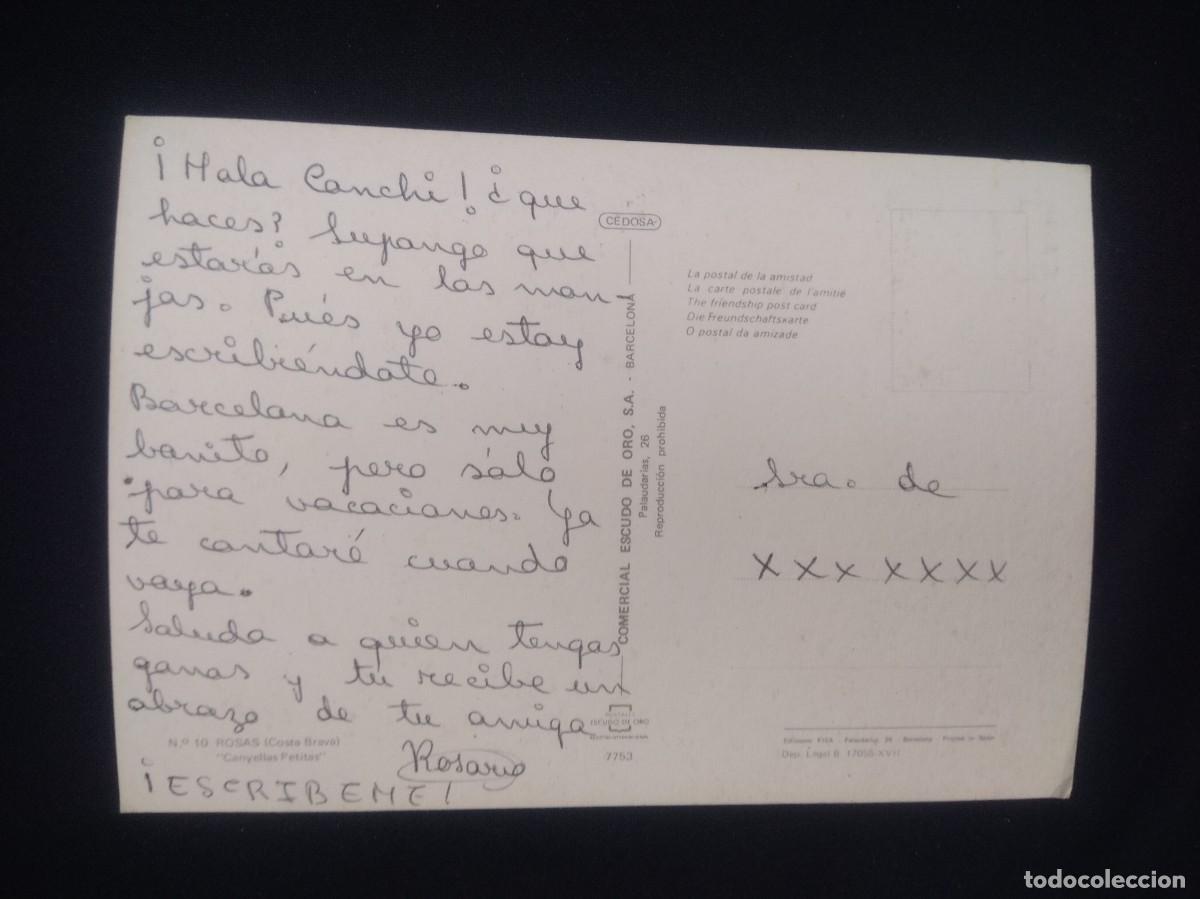 ¡Hola Conchi! ¿que
haces? Supongo que
estarás en las mon-
jas. Pués yo estoy
escribiéndote.
Barcelona es muy
bonito, pero sólo
para vacaciones. Ya
te contaré cuando
vaya.
Saluda a quien tengas
ganas y tu recibe un
abrazo de tu amiga
Rosario
¡ESCRIBEME!
N.º 10 ROSAS (Costa Brava)
"Canyellas Petitas"
CEDOSA
COMERCIAL ESCUDO DE ORO, S.A. - BARCELONA
Palaudarias, 26
Reproducción prohibida
ESCUDO DE ORO
7753
La postal de la amistad
La carte postale de l'amitié
The friendship post card
Die Freundschaftskarte
O postal da amizade
Sra. de
x x x x x x x
Dep. Legal B. 17055-XVII
todocoleccion